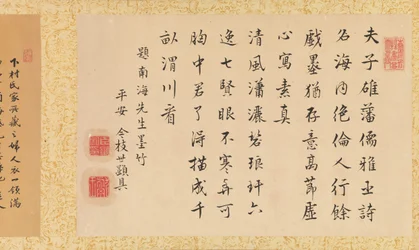 夫子雄藩儒雅臣詩
名海内絶倫人行餘
戯墨猶存意高節虚
心寫素真
清風瀟灑碧琅玕六
逸七賢眼不寒與可
胸中君了得描成千
畝渭川看
題南海先生墨竹
平安
下村氏家所藏婦人衣一領滿